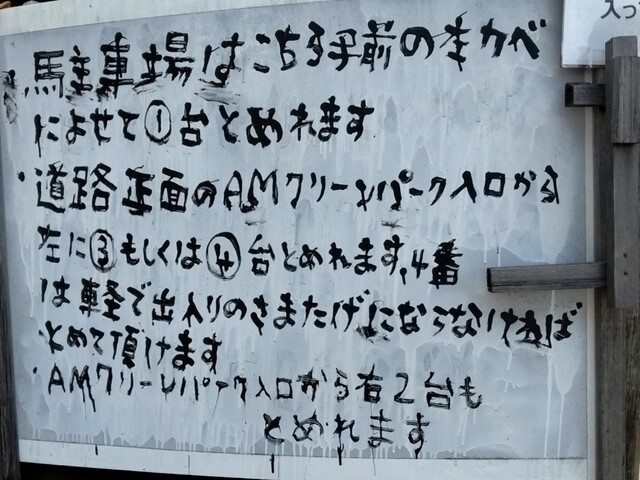 入っ
・馬主車場はこちら手前の木カベ
によせて①台とめれます
・道路正面のAMクリーンパーク入口から
左に③もしくは④台とめれます,4番
は軽で出入りのさまたげにならなければ
とめて頂けます
・AMクリーンパーク入口から右2台も
とめれます